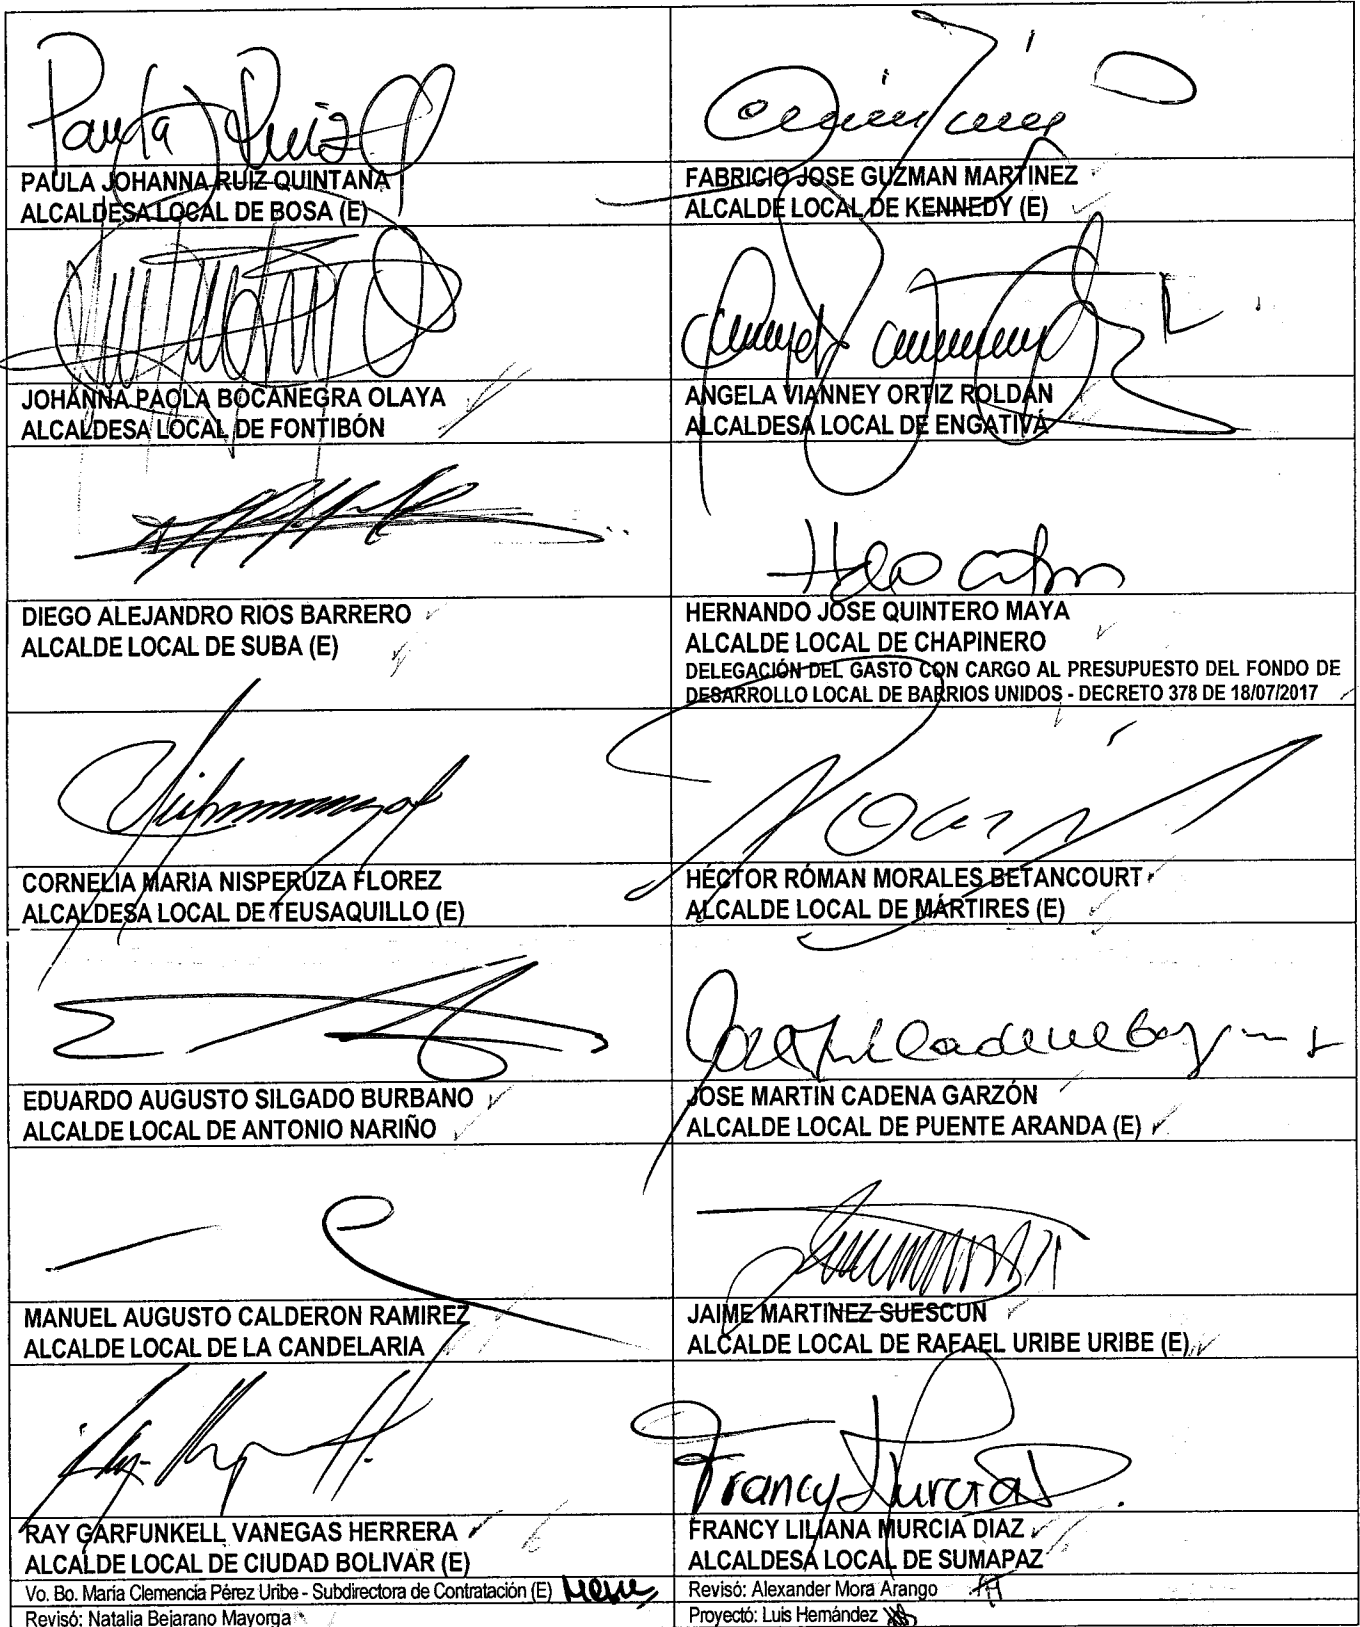 Paula Ruiz
PAULA JOHANNA RUIZ QUINTANA
ALCALDESA LOCAL DE BOSA (E)
FABRICIO JOSE GUZMAN MARTINEZ
ALCALDE LOCAL DE KENNEDY (E)
JOHANNA PAOLA BOCANEGRA OLAYA
ALCALDESA LOCAL DE FONTIBÓN
ANGELA VIANNEY ORTIZ ROLDAN
ALCALDESA LOCAL DE ENGATIVÁ
DIEGO ALEJANDRO RIOS BARRERO
ALCALDE LOCAL DE SUBA (E)
HERNANDO JOSE QUINTERO MAYA
ALCALDE LOCAL DE CHAPINERO
DELEGACIÓN DEL GASTO CON CARGO AL PRESUPUESTO DEL FONDO DE
DESARROLLO LOCAL DE BARRIOS UNIDOS - DECRETO 378 DE 18/07/2017
CORNELIA MARIA NISPERUZA FLOREZ
ALCALDESA LOCAL DE TEUSAQUILLO (E)
HÉCTOR RÓMAN MORALES BETANCOURT
ALCALDE LOCAL DE MÁRTIRES (E)
EDUARDO AUGUSTO SILGADO BURBANO
ALCALDE LOCAL DE ANTONIO NARIÑO
JOSE MARTIN CADENA GARZÓN
ALCALDE LOCAL DE PUENTE ARANDA (E)
MANUEL AUGUSTO CALDERON RAMIREZ
ALCALDE LOCAL DE LA CANDELARIA
JAIME MARTINEZ SUESCUN
ALCALDE LOCAL DE RAFAEL URIBE URIBE (E)
RAY GARFUNKELL VANEGAS HERRERA
ALCALDE LOCAL DE CIUDAD BOLIVAR (E)
Francy Murcia
FRANCY LILIANA MURCIA DIAZ
ALCALDESA LOCAL DE SUMAPAZ
Vo. Bo. María Clemencia Pérez Uribe - Subdirectora de Contratación (E)
Revisó: Alexander Mora Arango
Revisó: Natalia Bejarano Mayorga
Proyectó: Luis Hernández